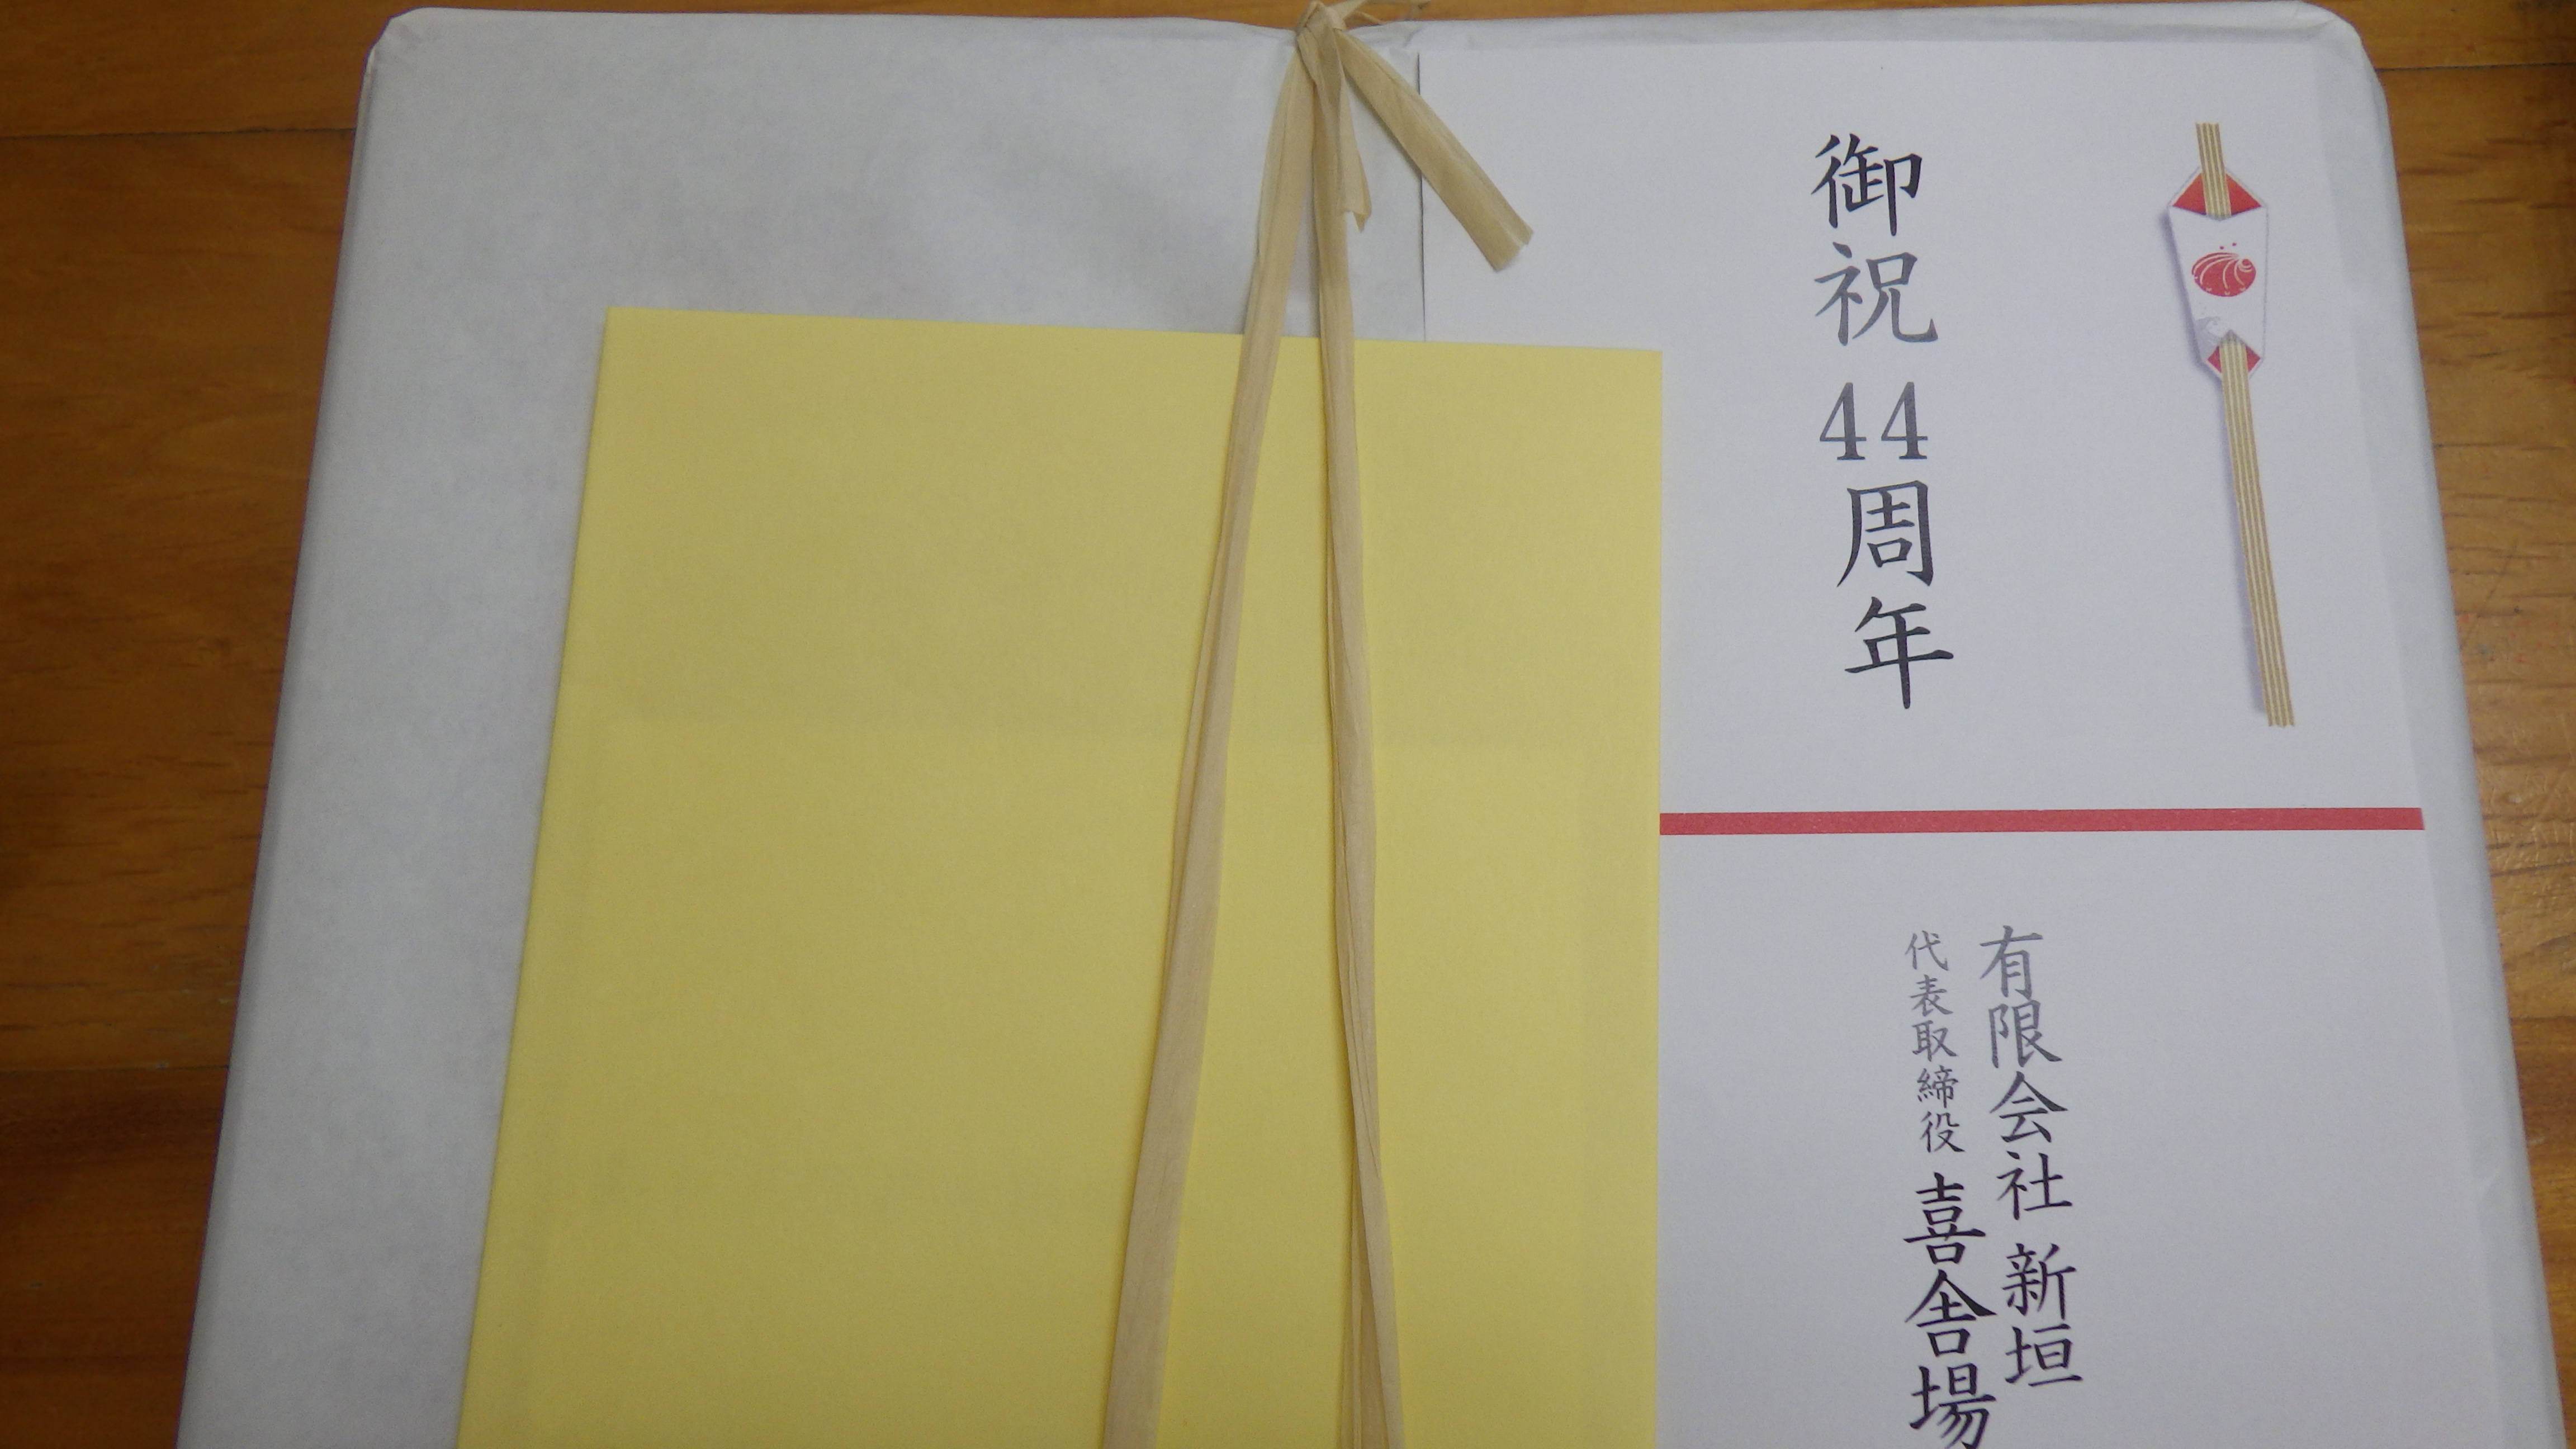 御祝 44周年
有限会社 新垣
代表取締役 喜舎場